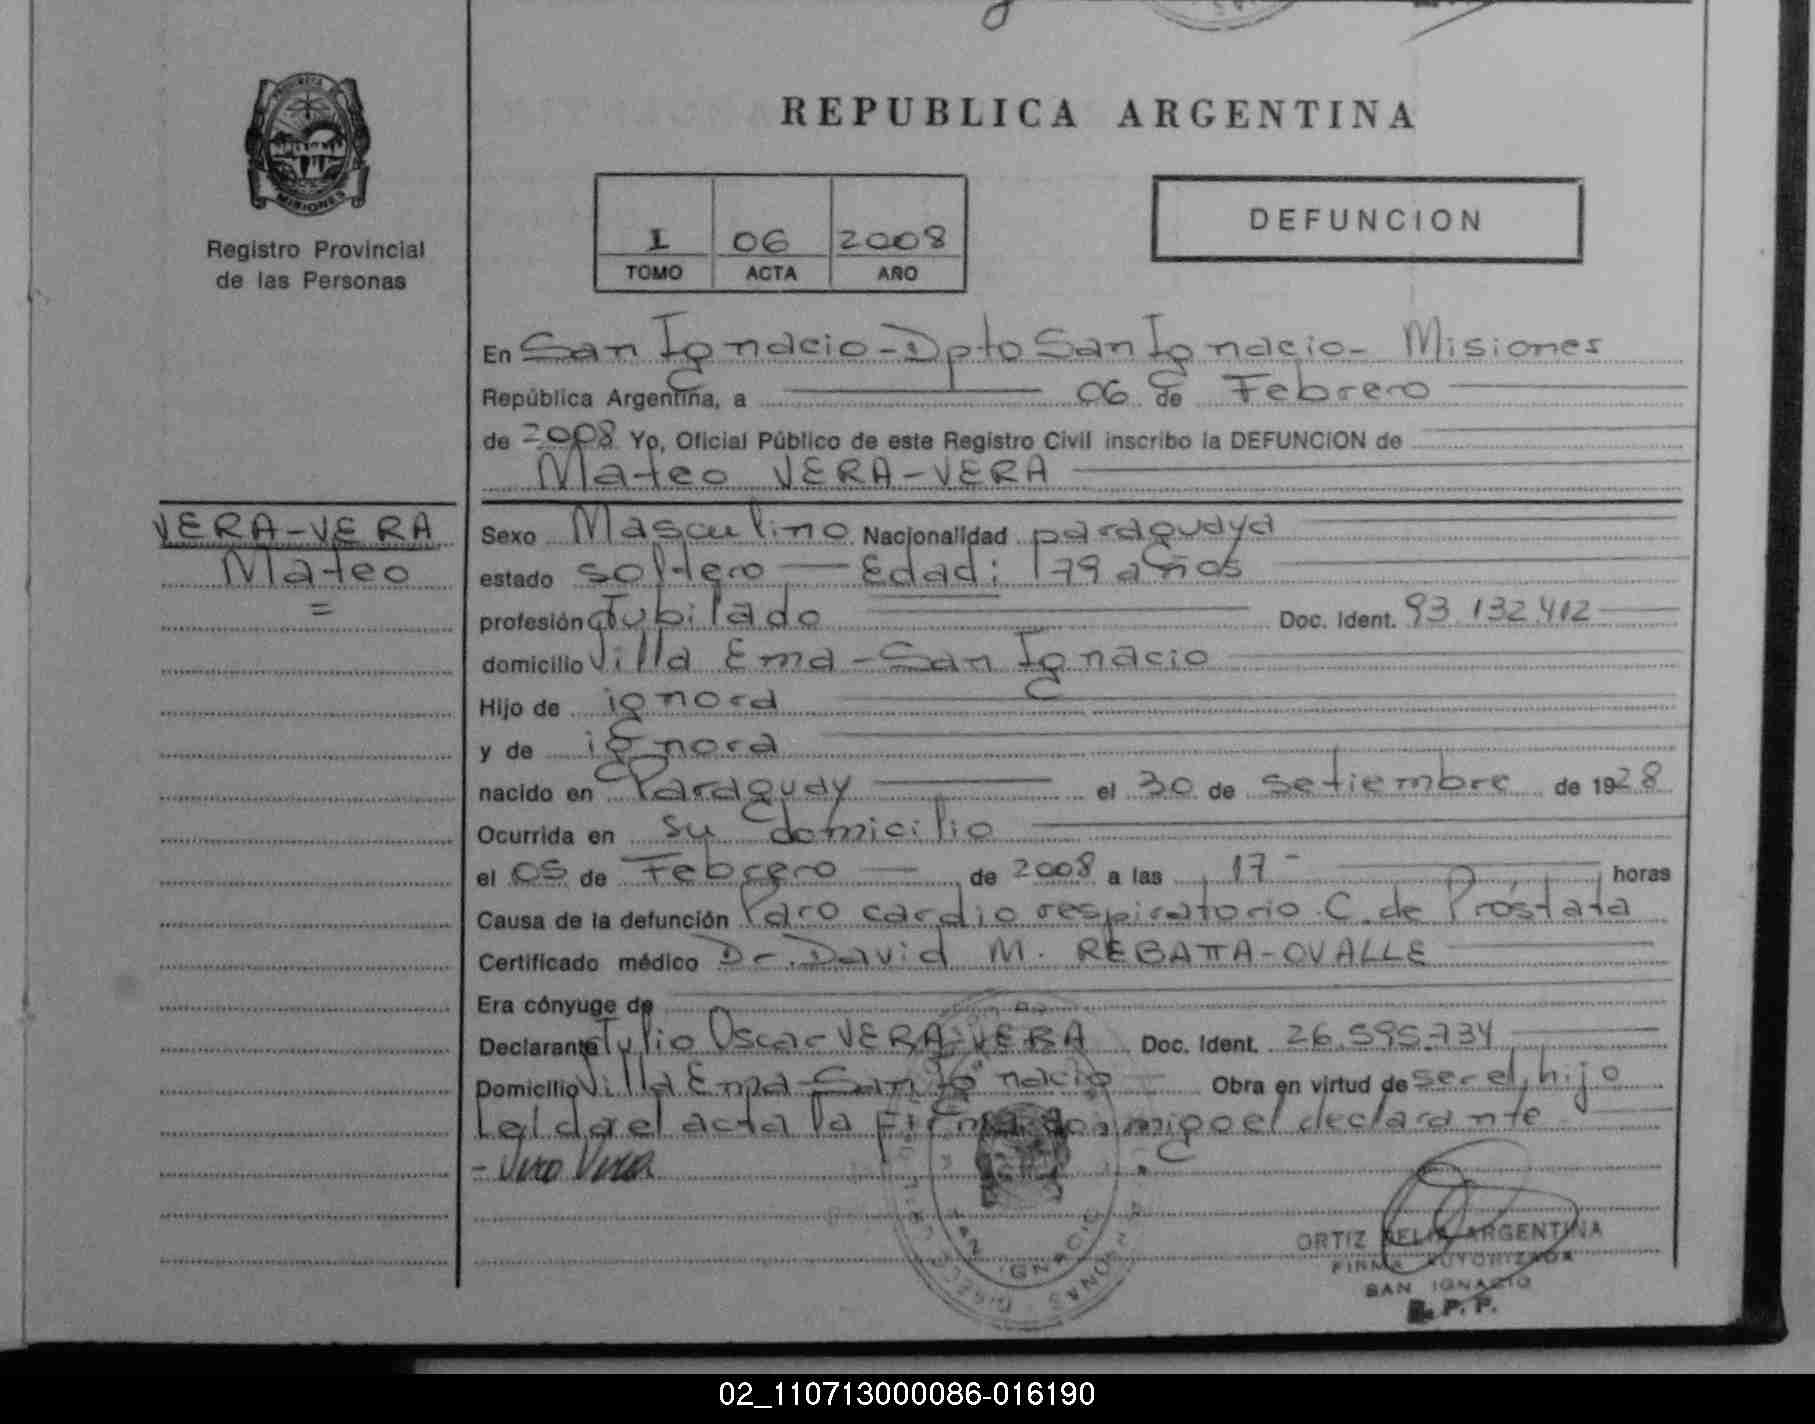 REPUBLICA ARGENTINA
MISIONES
Registro Provincial
de las Personas
I 06 2008
TOMO ACTA AÑO
DEFUNCION
En San Ignacio - Dpto San Ignacio - Misiones
República Argentina, a 06 de Febrero
de 2008 Yo, Oficial Público de este Registro Civil inscribo la DEFUNCION de
Mateo VERA-VERA
VERA-VERA
Mateo
=
Sexo Masculino Nacionalidad paraguaya
estado soltero - Edad: 79 años
profesión Jubilado Doc. Ident. 93.132.412
domicilio Villa Ema - San Ignacio
Hijo de ignora
y de ignora
nacido en Paraguay el 30 de setiembre de 1928
Ocurrida en su domicilio
el 05 de Febrero de 2008 a las 17 - horas
Causa de la defunción Paro cardio respiratorio C. de Próstata
Certificado médico Dr. David M. REBATTA-OVALLE
Era cónyuge de
Declarante Julio Oscar VERA-VERA Doc. Ident. 26.595.734
Domicilio Villa Ema - San Ignacio - Obra en virtud de ser el hijo
Leída el acta la firma conmigo el declarante
- Vera Vera
SAN IGNACIO
ORTIZ DELIA ARGENTINA
FIRMA AUTORIZADA
SAN IGNACIO
R. P. P.
02_110713000086-016190